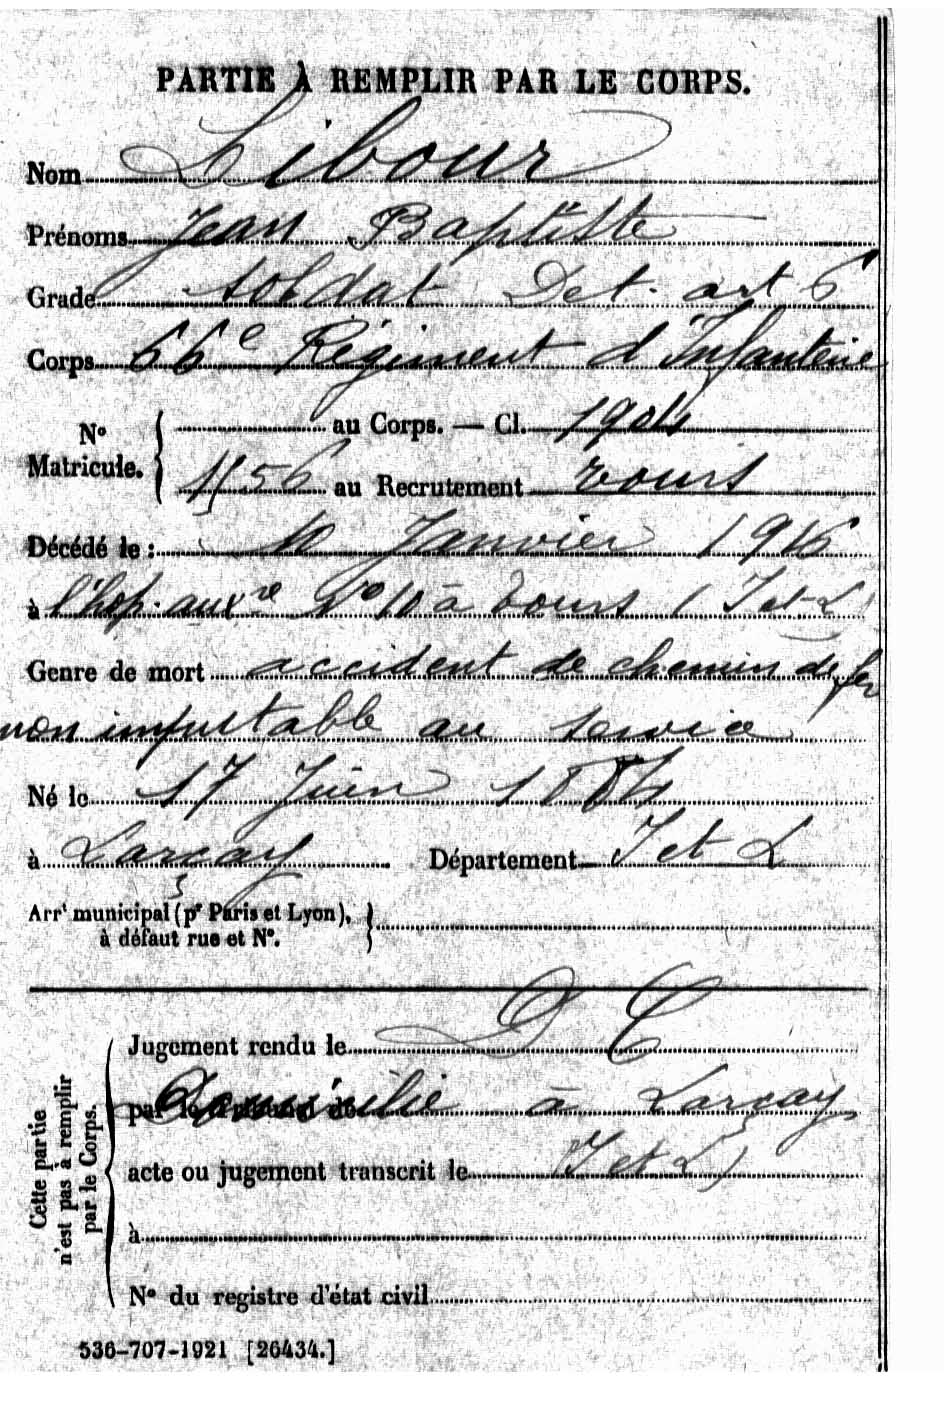 PARTIE À REMPLIR PAR LE CORPS.
Nom Libour
Prénoms Jean Baptiste
Grade soldat Det. art 6
Corps 66e Régiment d'Infanterie
N° Matricule. { au Corps. — Cl. 1904
1156 au Recrutement Tours
Décédé le : 10 Janvier 1916
à l'hop. auxre N°10 à Tours (I et L)
Genre de mort accident de chemin de fer
non imputable au service
Né le 17 Juin 1884
à Larçay Département I et L
Arrt municipal (pr Paris et Lyon), }
à défaut rue et N°.
Cette partie n'est pas à remplir par le Corps.
Jugement rendu le D C
par le Tribunal de Domicilié à Larçay
acte ou jugement transcrit le (I et L)
à
N° du registre d'état civil
536-707-1921 [26434.]